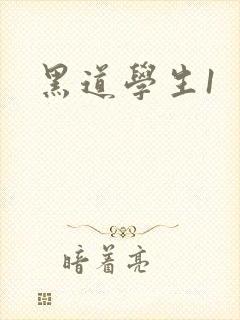 黑道學生1
暗着亮